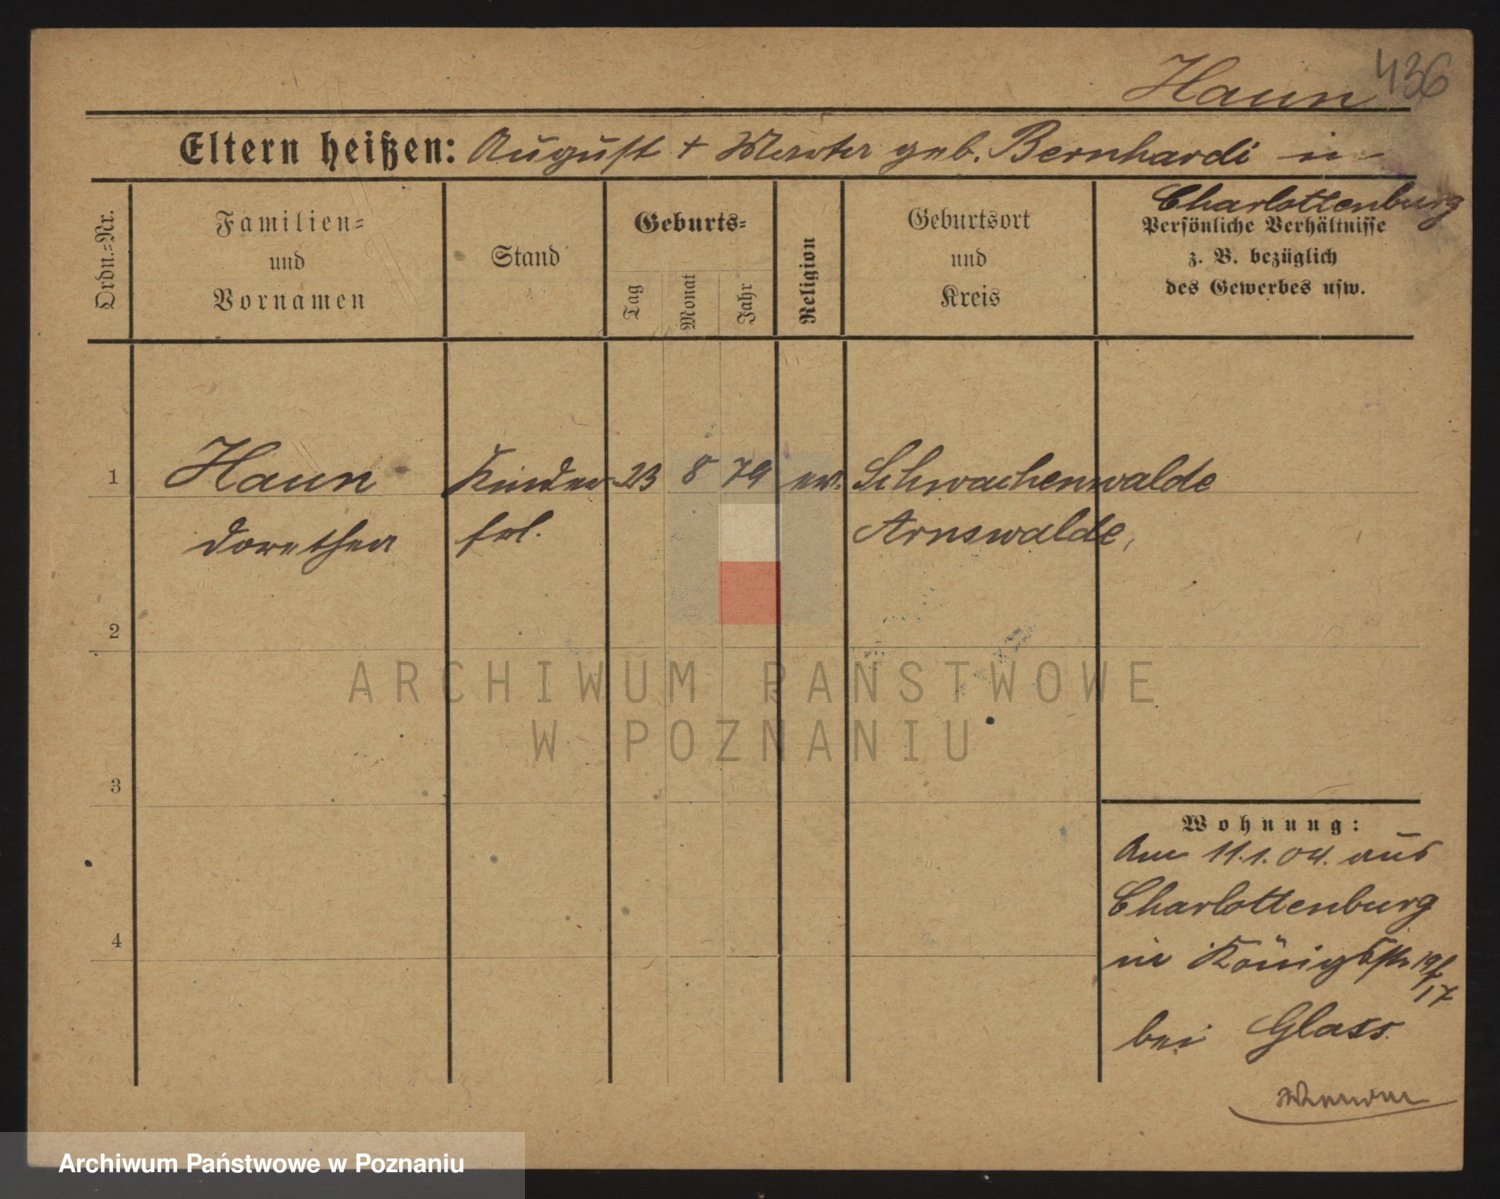 436
Haun
Eltern heißen: August + Martha geb. Bernhardi in
Charlottenburg
Ordn.=Nr.
Familien=
und
Vornamen
Stand
Geburts=
Tag
Monat
Jahr
Religion
Geburtsort
und
Kreis
Persönliche Verhältnisse
z. B. bezüglich
des Gewerbes usw.
1
Haun Kinder- 23 8 79 ev. Schwachenwalde
Dorothea frl. Arnswalde,
2
3
4
Wohnung:
Am 11.1.04. aus
Charlottenburg
in Königsstr 19/17
bei Glass.
ARCHIWUM PAŃSTWOWE
W POZNANIU
Archiwum Państwowe w Poznaniu